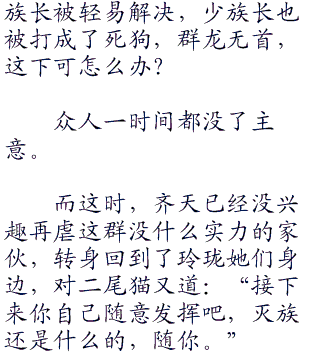 族长被轻易解决，少族长也
被打成了死狗，群龙无首，
这下可怎么办？
众人一时间都没了主
意。
而这时，齐天已经没兴
趣再虐这群没什么实力的家
伙，转身回到了玲珑她们身
边，对二尾猫又道：“接下
来你自己随意发挥吧，灭族
还是什么的，随你。”